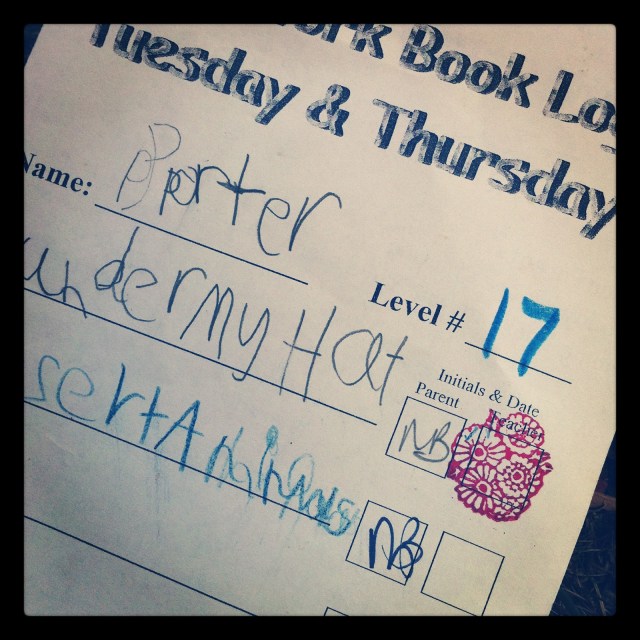 ork Book Log
Tuesday & Thursday
Name: Porter
Level # 17
under my Hat
Initials & Date
Parent Teacher
NB
sert Animals
NB